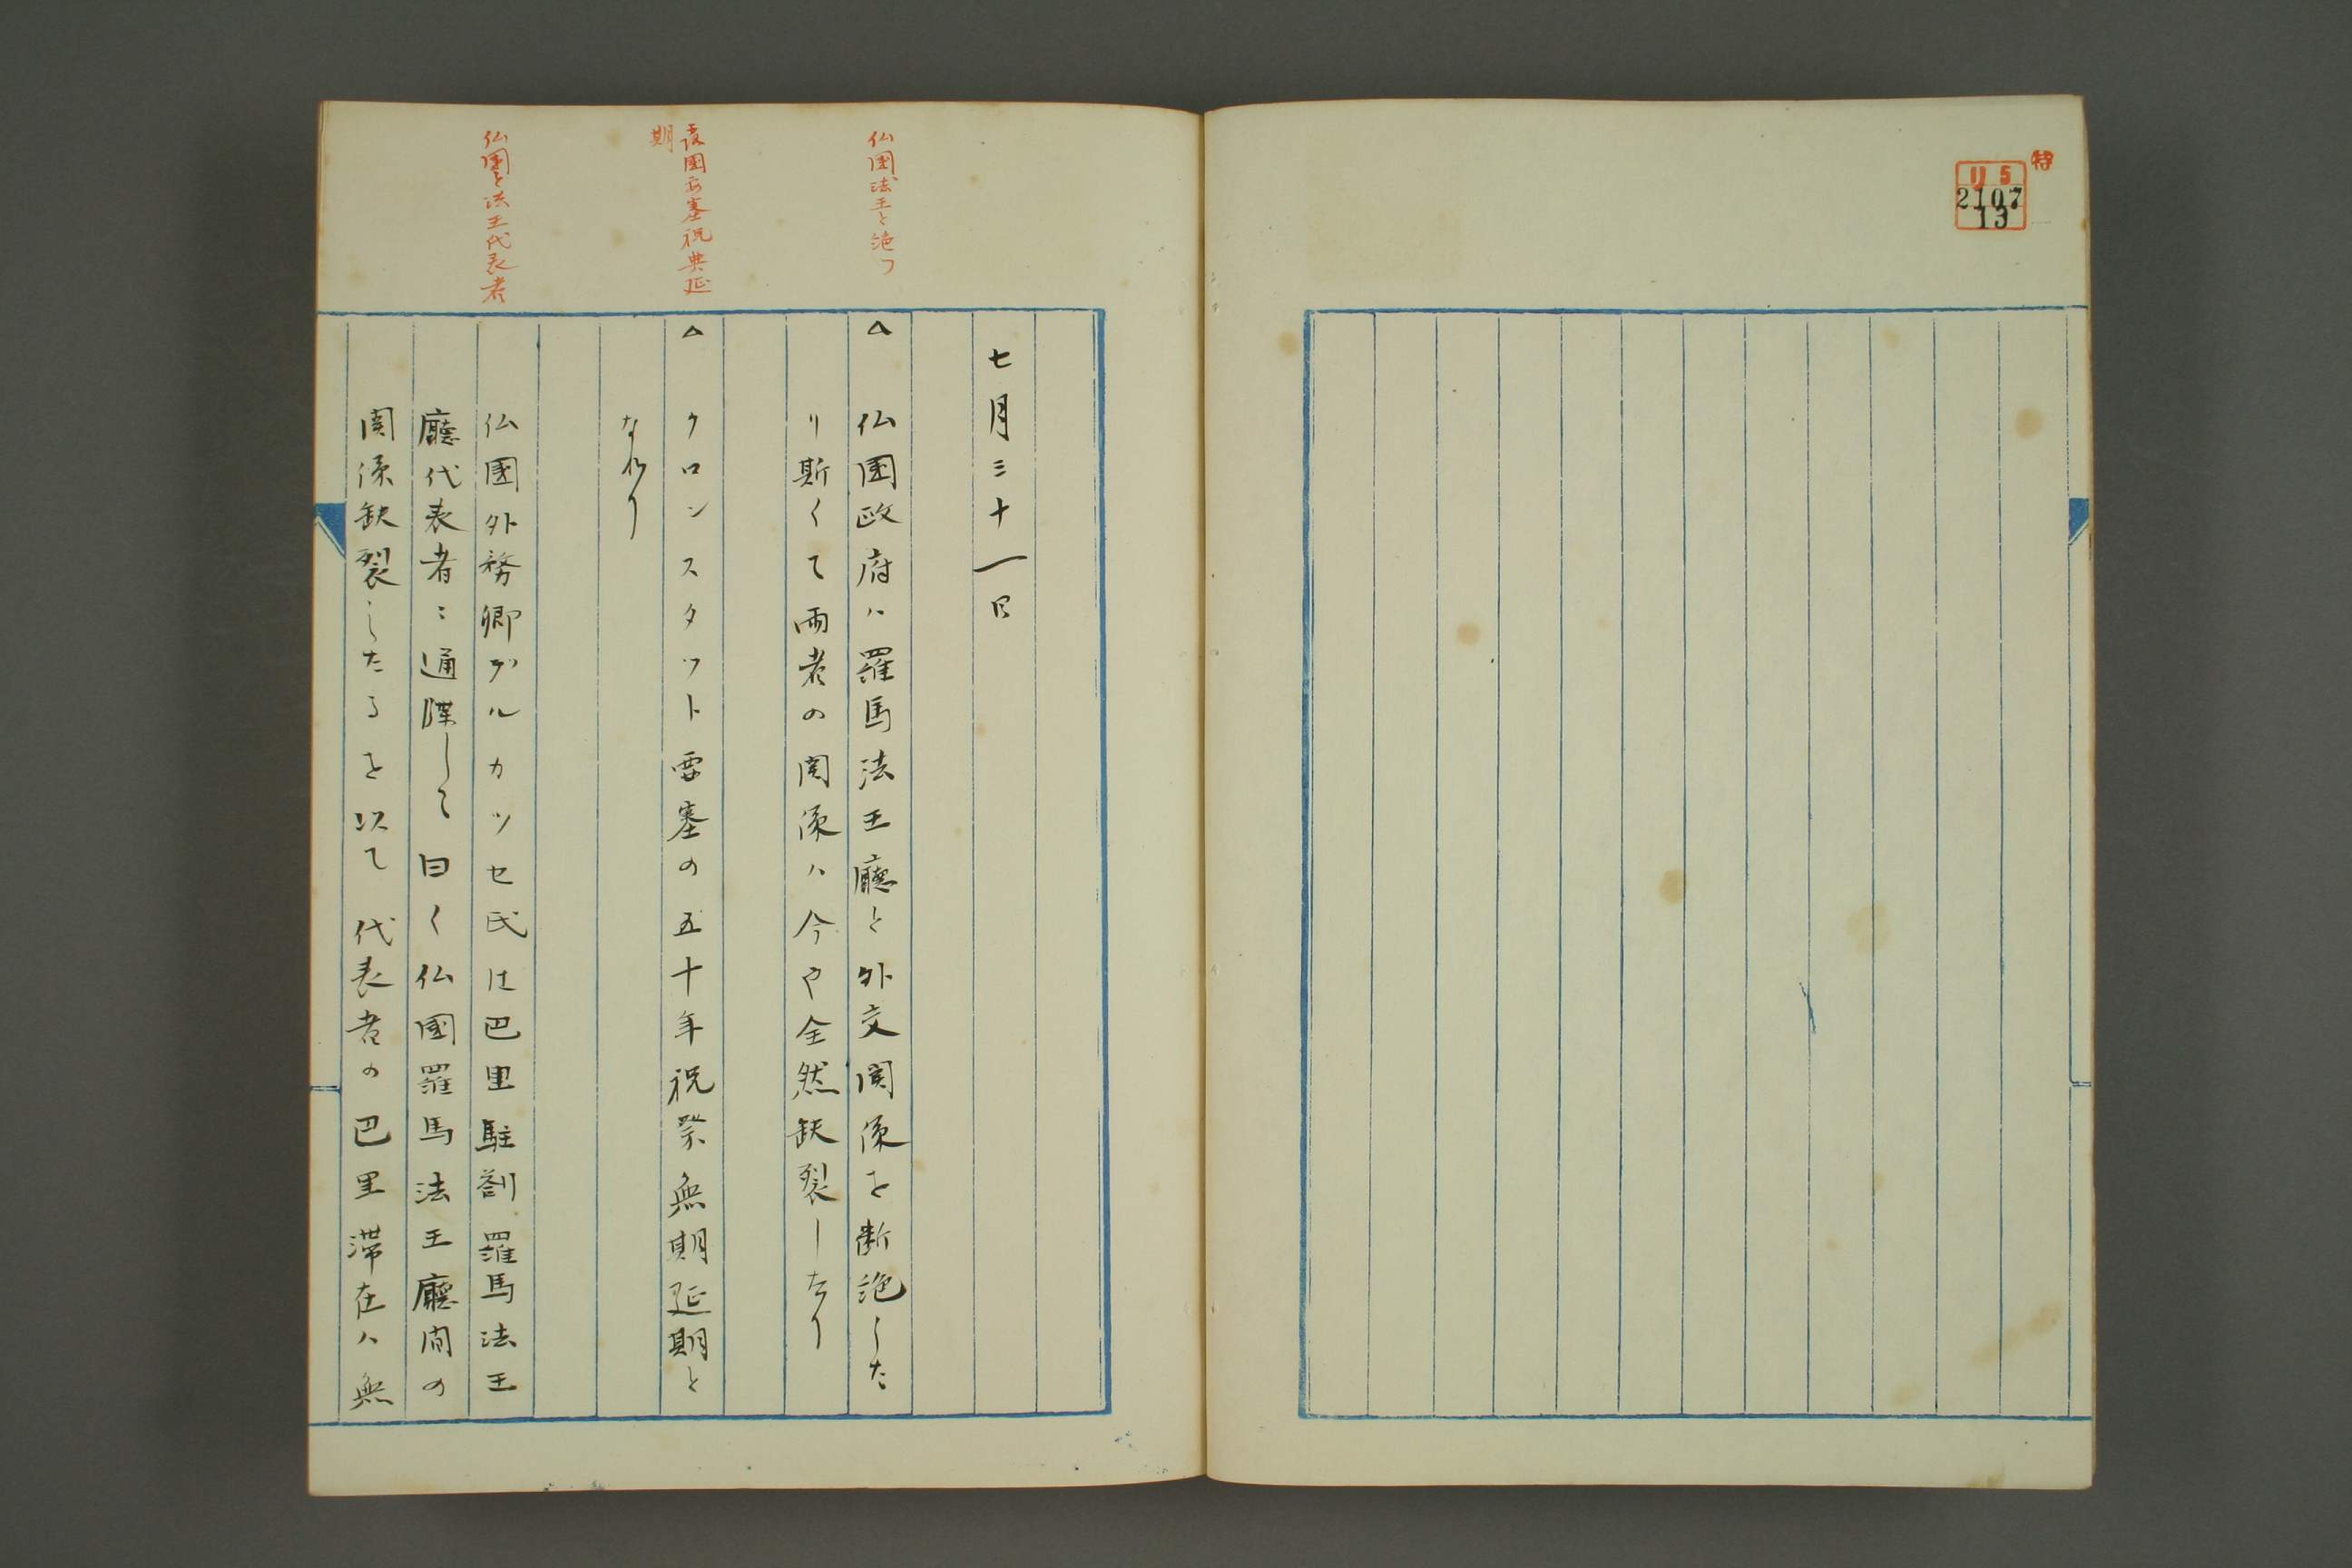 特
リ5
2107
13
七月三十一日
仏國法王と絶つ
△ 仏國政府ハ羅馬法王廳と外交関係を断絶した
り斯くて両者の関係ハ今や全然缺裂したり
露國要塞祝典延
期
△ クロンスタット要塞の五十年祝祭無期延期と
なれり
仏國と法王代表者
仏國外務卿デルカッセ氏は巴里駐劄羅馬法王
廳代表者ニ通牒して曰く仏國羅馬法王廳間の
関係缺裂したるを以て代表者の巴里滞在ハ無